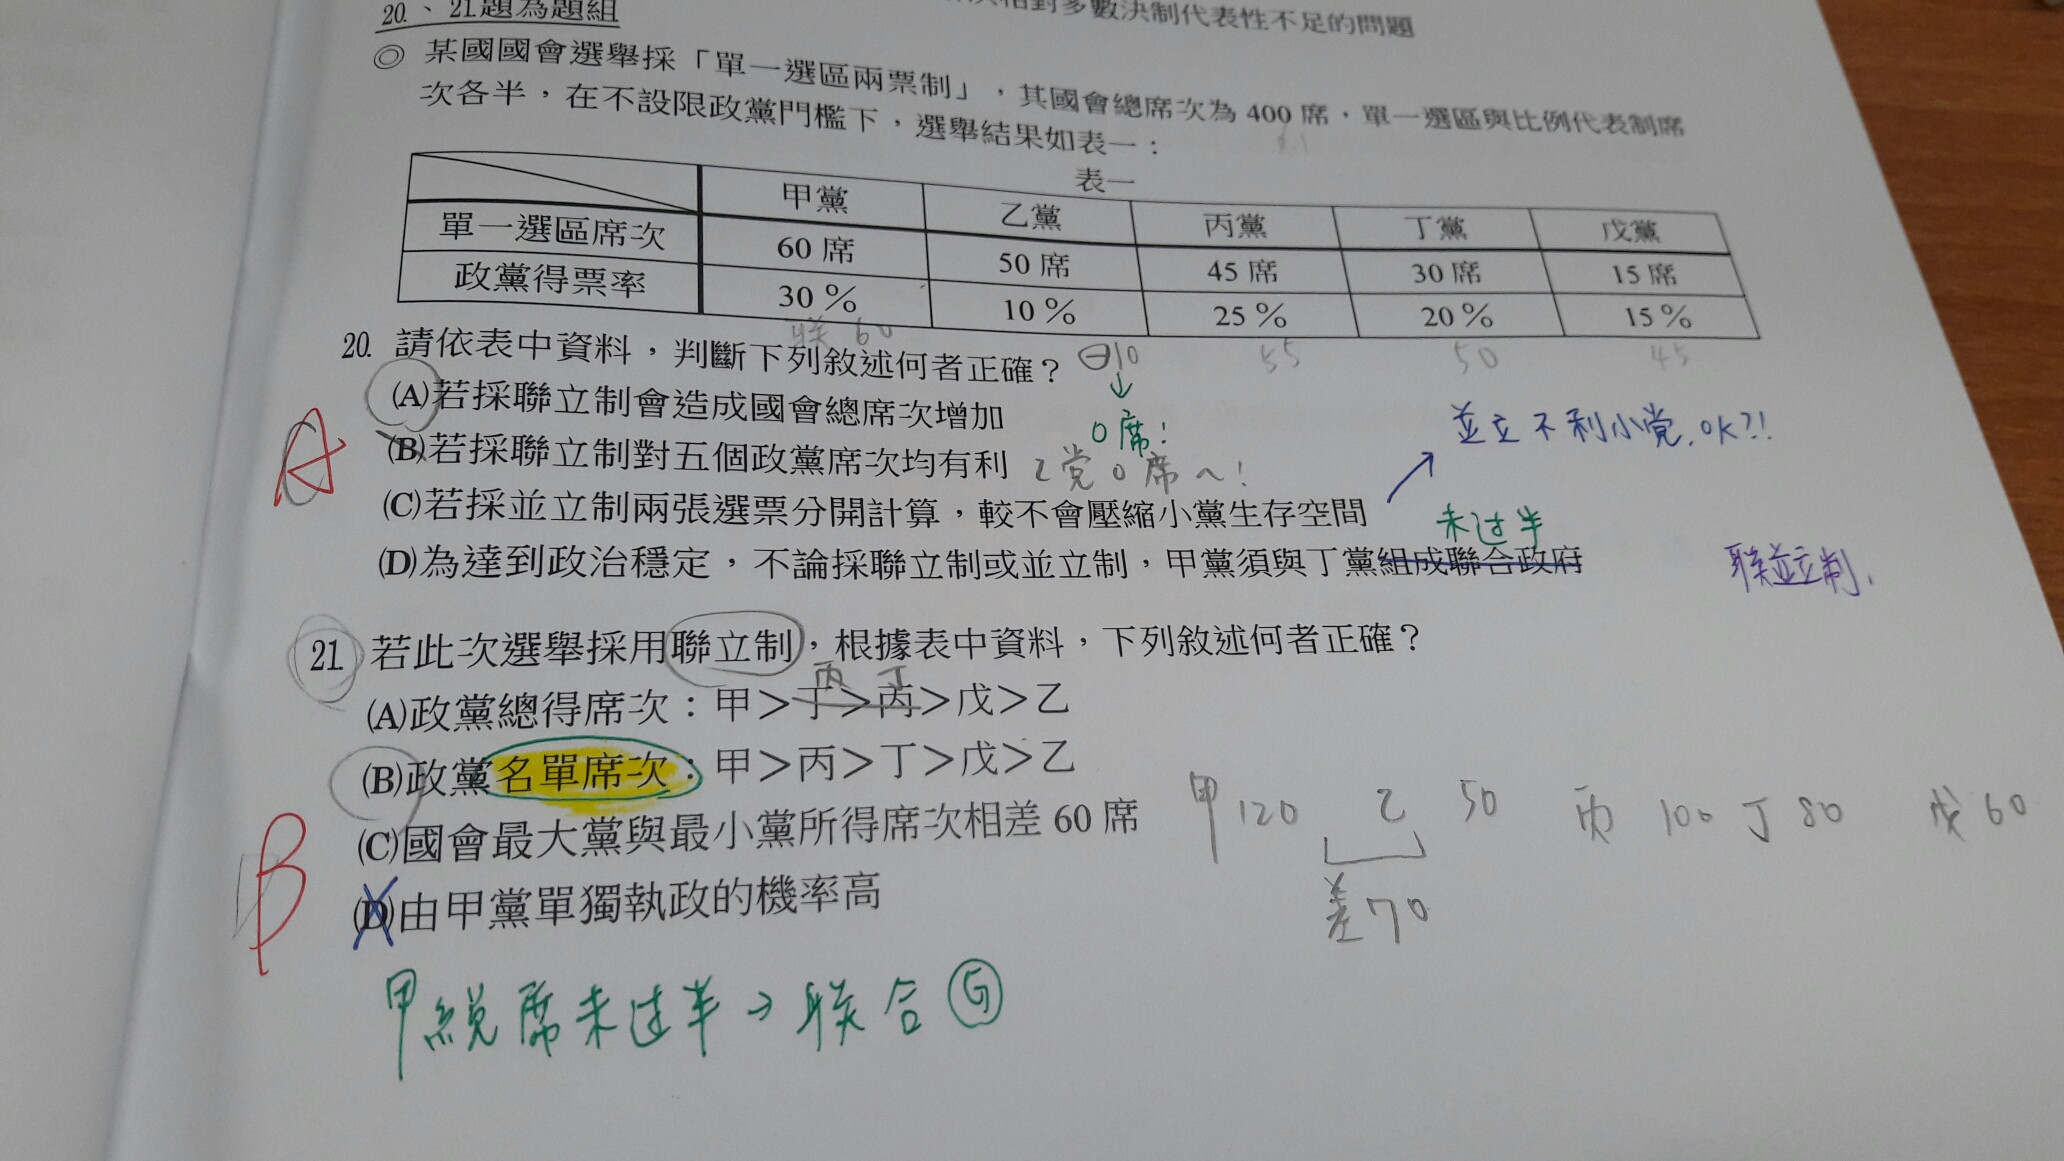 相對多數決制代表性不足的問題
20.、21題為題組
◎ 某國國會選舉採「單一選區兩票制」，其國會總席次為 400 席，單一選區與比例代表制席
次各半，在不設限政黨門檻下，選舉結果如表一：
表一
甲黨 乙黨 丙黨 丁黨 戊黨
單一選區席次 60 席 50 席 45 席 30 席 15 席
政黨得票率 30% 10% 25% 20% 15%
联 60 ⊖10 55 50 45
20. 請依表中資料，判斷下列敘述何者正確？
↓
0席！
A
(A)若採聯立制會造成國會總席次增加
(B)若採聯立制對五個政黨席次均有利
乙党0席～！
並立不利小党，OK？！
(C)若採並立制兩張選票分開計算，較不會壓縮小黨生存空間
未过半
(D)為達到政治穩定，不論採聯立制或並立制，甲黨須與丁黨組成聯合政府
联並立制，
21 若此次選舉採用聯立制，根據表中資料，下列敘述何者正確？
丙 丁
(A)政黨總得席次：甲＞丁＞丙＞戊＞乙
(B)政黨名單席次：甲＞丙＞丁＞戊＞乙
B
甲120 乙 50 丙 100 丁 80 戊 60
(C)國會最大黨與最小黨所得席次相差 60 席
差70
(D)由甲黨單獨執政的機率高
甲総席未过半→联合Ⓖ